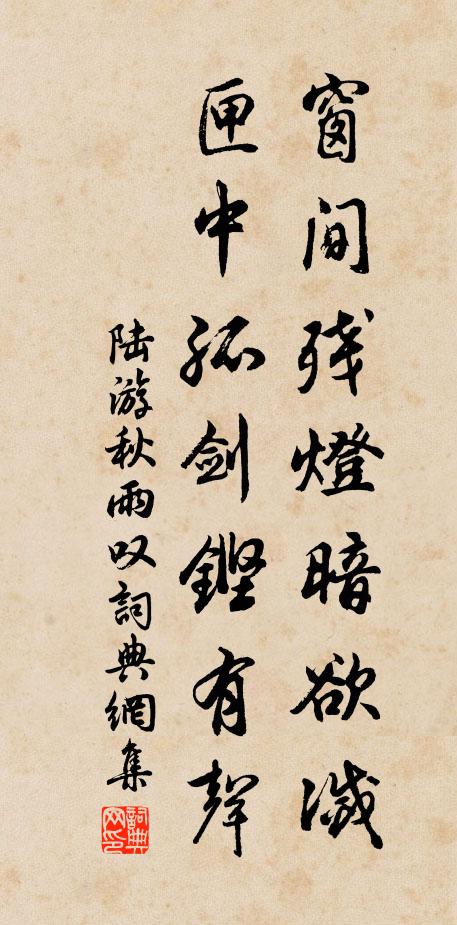 窗间残燈暗欲滅
匣中孤剑鏗有聲
陆游秋雨叹詞典網集
詞典
网印